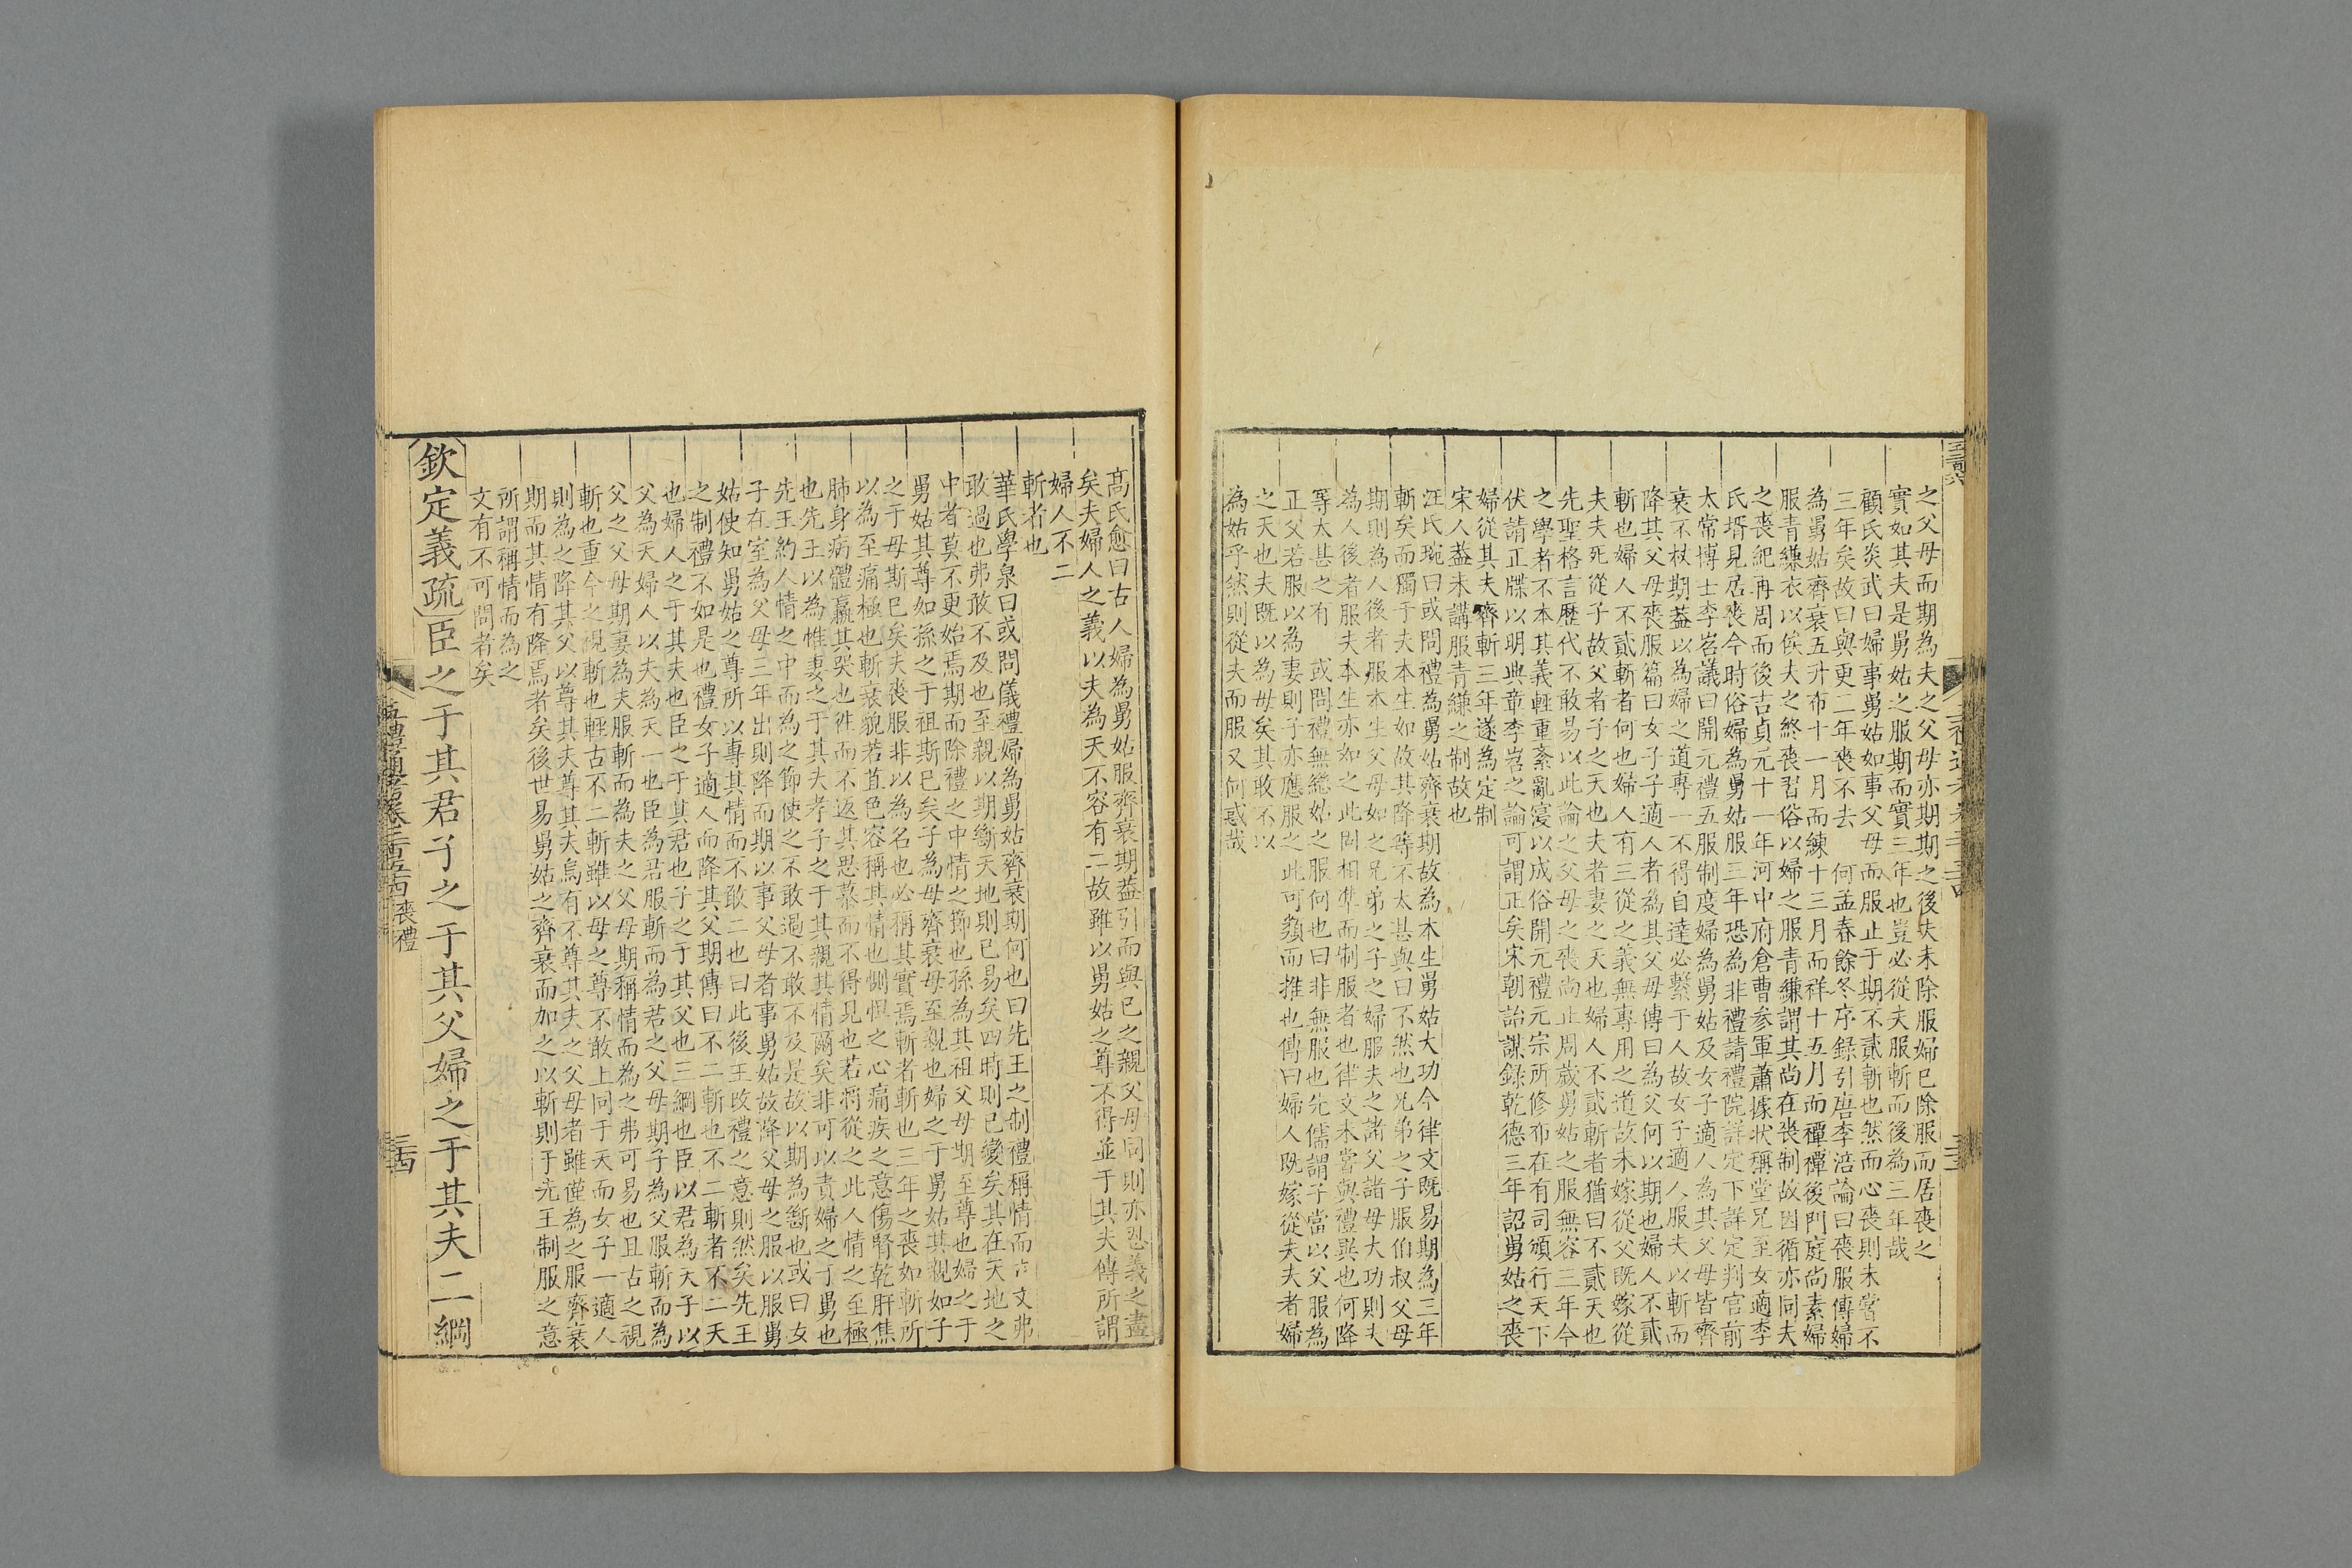 之父母而期為夫之父母亦期期之後夫未除服婦已除服而居喪之
實如其夫是舅姑之服期而實三年也豈必從夫服斬而後為三年哉
顧氏炎武曰婦事舅姑如事父母而服止于期不貳斬也然而心喪則未嘗不
三年矣故曰與更三年喪不去 何孟春餘冬序録引唐李涪論曰喪服傳婦
為舅姑齊衰五升布十一月而練十三月而祥十五月而禫禫後門庭尚素婦
服青縑衣以俟夫之終喪習俗以婦之服青縑謂其尚在喪制故因循亦同夫
之喪紀再周而後吉貞元十一年河中府倉曹参軍蕭據狀稱堂兄至女適李
氏壻見居喪今時俗婦為舅姑服三年恐為非禮請禮院詳定下詳定判官前
太常博士李岧議曰開元禮五服制度婦為舅姑及女子適人為其父母皆齊
衰不杖期葢以為婦之道專一不得自達必繫于人故女子適人服夫以斬而
降其父母喪服篇曰女子子適人者為其父母傳曰為父何以期也婦人不貳
斬也婦人不貳斬者何也婦人有三從之義無專用之道故未嫁從父既嫁從
夫夫死從子故父者子之天也夫者妻之天也婦人不貳斬者猶曰不貳天也
先聖格言歷代不敢易以此論之父母之喪尚止周歲舅姑之服無容三年今
之學者不本其義輕重紊亂寖以成俗開元禮元宗所修布在有司頒行天下
伏請正牒以明典章李岧之論可謂正矣宋朝詒謀錄乾德三年詔舅姑之喪
婦從其夫齊斬三年遂為定制
宋人葢未講服青縑之制故也
汪氏琬曰或問禮為舅姑齊衰期故為本生舅姑大功今律文既易期為三年
斬矣而獨于夫本生如故其降等不太甚與曰不然也兄弟之子服伯叔父母
期則為人後者服本生父母如之兄弟之子之婦服夫之諸父諸母大功則夫
為人後者服夫本生亦如之此固相準而制服者也律文未嘗與禮異也何降
等太甚之有 或問禮無繼姑之服何也曰非無服也先儒謂子當以父服為
正父若服以為妻則子亦應服之此可類而推也傳曰婦人既嫁從夫夫者婦
之天也夫既以為母矣其敢不以
為姑乎然則從夫而服又何惑哉
高氏愈曰古人婦為舅姑服齊衰期葢引而與已之親父母同則亦恩義之盡
矣夫婦人之義以夫為天不容有二故雖以舅姑之尊不得並于其夫傳所謂
婦人不二
斬者也
華氏學泉曰或問儀禮婦為舅姑齊衰期何也曰先王之制禮稱情而立文弗
敢過也弗敢不及也至親以期斷天地則已易矣四時則已變矣其在天地之
中者莫不更始焉期而除禮之中情之節也孫為其祖父母期至尊也婦之于
舅姑其尊如孫之于祖斯已矣子為母齊衰母至親也婦之于舅姑其親如子
之于母斯已矣夫喪服非以為名也必稱其實焉斬者斬也三年之喪如斬所
以為至痛極也斬衰貌若苴色容稱其情也惻怛之心痛疾之意傷腎乾肝焦
肺身病體羸其哭也往而不返其思慕而不得見也若將從之此人情之至極
也先王以為惟妻之于其夫孝子之于其親其情爾矣非可以責婦之于舅也
先王約人情之中而為之節使之不敢過不敢不及是故以期為斷也或曰女
子在室為父母三年出則降而期以事父母者事舅姑故降父母之服以服舅
姑使知舅姑之尊所以專其情而不敢二也曰此後王改禮之意則然矣先王
之制禮不如是也禮女子適人而降其父期傳曰不二斬也不二斬者不二天
也婦人之于其夫也臣之于其君也子之于其父也三綱也臣以君為天子以
父為天婦人以夫為天一也臣為君服斬而為君之父母期子為父服斬而為
父之父母期妻為夫服斬而為夫之父母期稱情而為之弗可易也且古之視
斬也重今之視斬也輕古不二斬雖以母之尊不敢上同于天而女子一適人
則為之降其父以尊其夫尊其夫烏有不尊其夫之父母者雖僅為之服齊衰
期而其情有降焉者矣後世易舅姑之齊衰而加之以斬則于先王制服之意
所謂稱情而為之
文有不可問者矣
欽定義疏臣之于其君子之于其父婦之于其夫二綱
五禮通考卷二百五十四 喪禮
三四